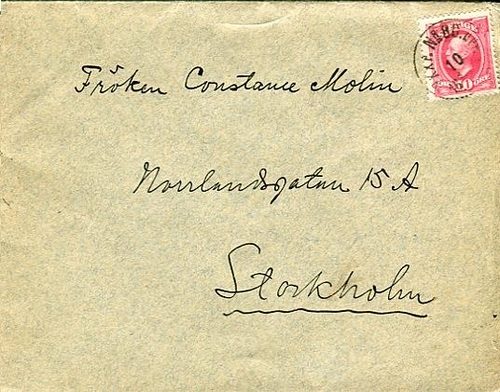 Fröken Constance Molin
Norrlandsgatan 15 A
Stockholm